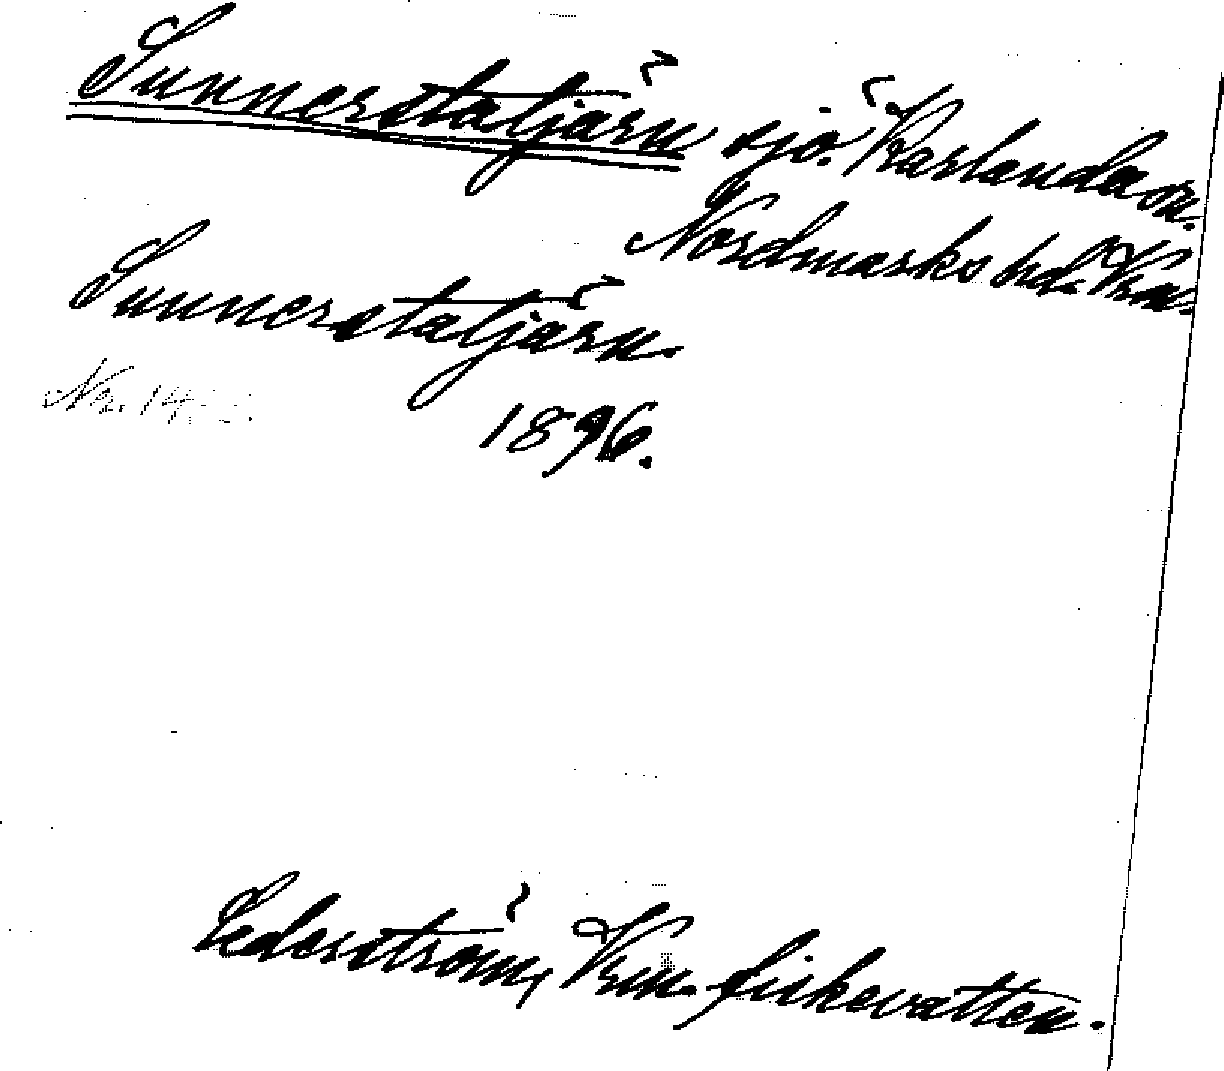 Sunnerstatjärn sjö. Karlanda sn.
Nordmarks hd. Vrm.
Sunnerstatjärn.
No. 14
1896.
Cederström, Vrm. fiskevatten.